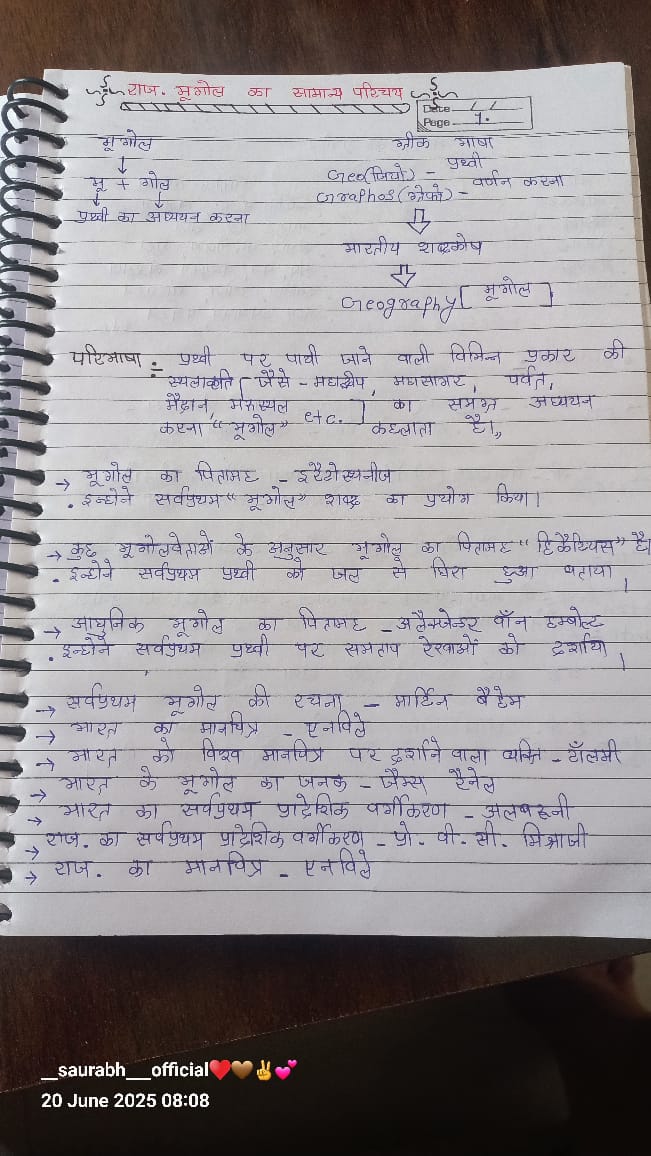 राज. भूगोल का सामान्य परिचय
Date / /
Page 1.
भूगोल
ग्रीक भाषा
Geo(जियो) - पृथ्वी
भू + गोल
Graphos(ग्रेफो) - वर्णन करना
पृथ्वी का अध्ययन करना
भारतीय शब्दकोष
Geography [ भूगोल ]
परिभाषा :- पृथ्वी पर पायी जाने वाली विभिन्न प्रकार की
स्थलाकृति [ जैसे - महाद्वीप, महासागर, पर्वत,
मैदान, मरुस्थल etc. ] का समग्र अध्ययन
करना "भूगोल" कहलाता है।,,
→ भूगोल का पितामह - इरैटोस्थनीज
. इन्होने सर्वप्रथम "भूगोल" शब्द का प्रयोग किया।
→ कुछ भूगोलवेताओं के अनुसार भूगोल का पितामह "हिकैटियस" है।
. इन्होने सर्वप्रथम पृथ्वी को जल से घिरा हुआ बताया।
→ आधुनिक भूगोल का पितामह - अलैक्जेन्डर वॉन हम्बोल्ट
. इन्होने सर्वप्रथम पृथ्वी पर समताप रेखाओं को दर्शाया।
→ सर्वप्रथम भूगोल की रचना - मार्टिन बैहेम
→ भारत का मानचित्र - एनविले
→ भारत को विश्व मानचित्र पर दर्शाने वाला व्यक्ति - टॉलमी
→ भारत के भूगोल का जनक - जैम्स रैनेल
→ भारत का सर्वप्रथम प्रादेशिक वर्गीकरण - अलबरूनी
→ राज. का सर्वप्रथम प्रादेशिक वर्गीकरण - प्रो. वी. सी. मिश्राजी
→ राज. का मानचित्र - एनविले
__saurabh__official❤️🤎✌️💕
20 June 2025 08:08